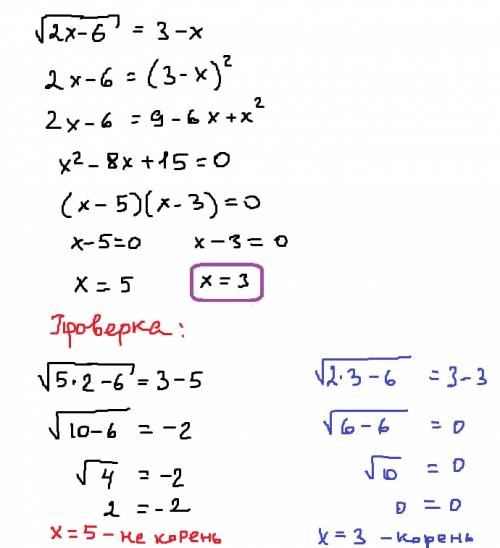 √2x-6 = 3-x
2x-6 = (3-x)²
2x-6 = 9-6x+x²
x²-8x+15=0
(x-5)(x-3)=0
x-5=0 x-3=0
x=5 x=3
Проверка:
√5·2-6 = 3-5
√10-6 = -2
√4 = -2
2 = -2
x=5 - не корень
√2·3-6 = 3-3
√6-6 = 0
√10 = 0
0 = 0
x=3 - корень